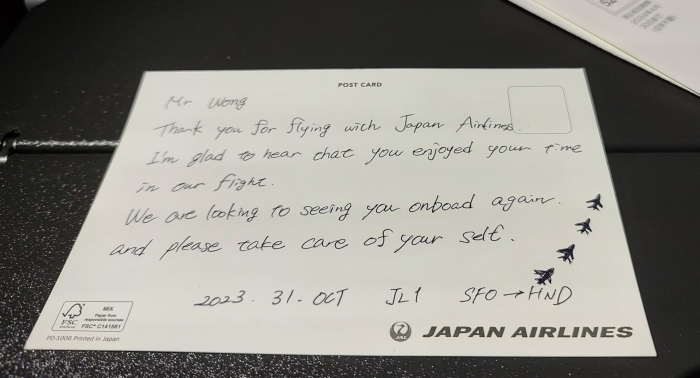 POST CARD
Mr Wong
Thank you for flying with Japan Airlines.
I'm glad to hear that you enjoyed your time
in our flight.
We are looking to seeing you onboad again.
and please take care of your self.
2023. 31. OCT JL1 SFO → HND
FSC
MIX
Paper from
responsible sources
FSC® C141581
PD-1006 Printed in Japan
JAL
JAPAN AIRLINES